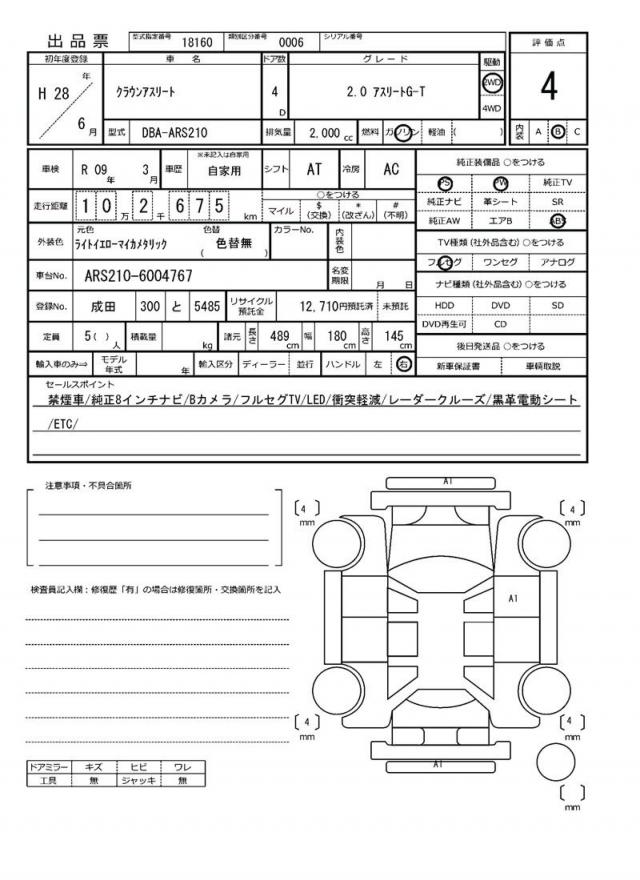 出品票 型式指定番号 18160 類別区分番号 0006 シリアル番号
評価点
4
内装 A B C
初年度登録 車名 ドア数 グレード 駆動
H 28 年 6 月 クラウンアスリート 4 D 2.0 アスリートG-T 2WD 4WD
型式 DBA-ARS210 排気量 2,000 cc 燃料 ガソリン 軽油 ( )
車検 R 09 年 3 月 車歴 ※未記入は自家用 自家用 シフト AT 冷房 AC
走行距離 1 0 万 2 千 6 7 5 km
○をつける
マイル $ (交換) * (改ざん) # (不明)
外装色 元色 ライトイエローマイカメタリック 色替 ( 色替無 ) カラーNo. 内装色
車台No. ARS210-6004767 名変期限 月 日
登録No. 成田 300 と 5485 リサイクル預託金 12,710円預託済 未預託
定員 5( ) 人 積載量 kg 諸元 長さ 489 cm 幅 180 cm 高さ 145 cm
輸入車のみ⇒ モデル年式 年 輸入区分 ディーラー 並行 ハンドル 左 右
純正装備品 ○をつける
PS PW 純正TV
純正ナビ 革シート SR
純正AW エアB ABS
TV種類(社外品含む) ○をつける
フルセグ ワンセグ アナログ
ナビ種類(社外品含む) ○をつける
HDD DVD SD
DVD再生可 CD
後日発送品 ○をつける
新車保証書 車輌取説
セールスポイント
禁煙車/純正8インチナビ/Bカメラ/フルセグTV/LED/衝突軽減/レーダークルーズ/黒革電動シート
/ETC/
注意事項・不具合箇所
検査員記入欄：修復歴「有」の場合は修復箇所・交換箇所を記入
ドアミラー キズ ヒビ ワレ
工具 無 ジャッキ 無
A1
[ 4 ] mm
[ 4 ] mm
A1
[ 4 ] mm
[ 4 ] mm
A1
[ ] mm